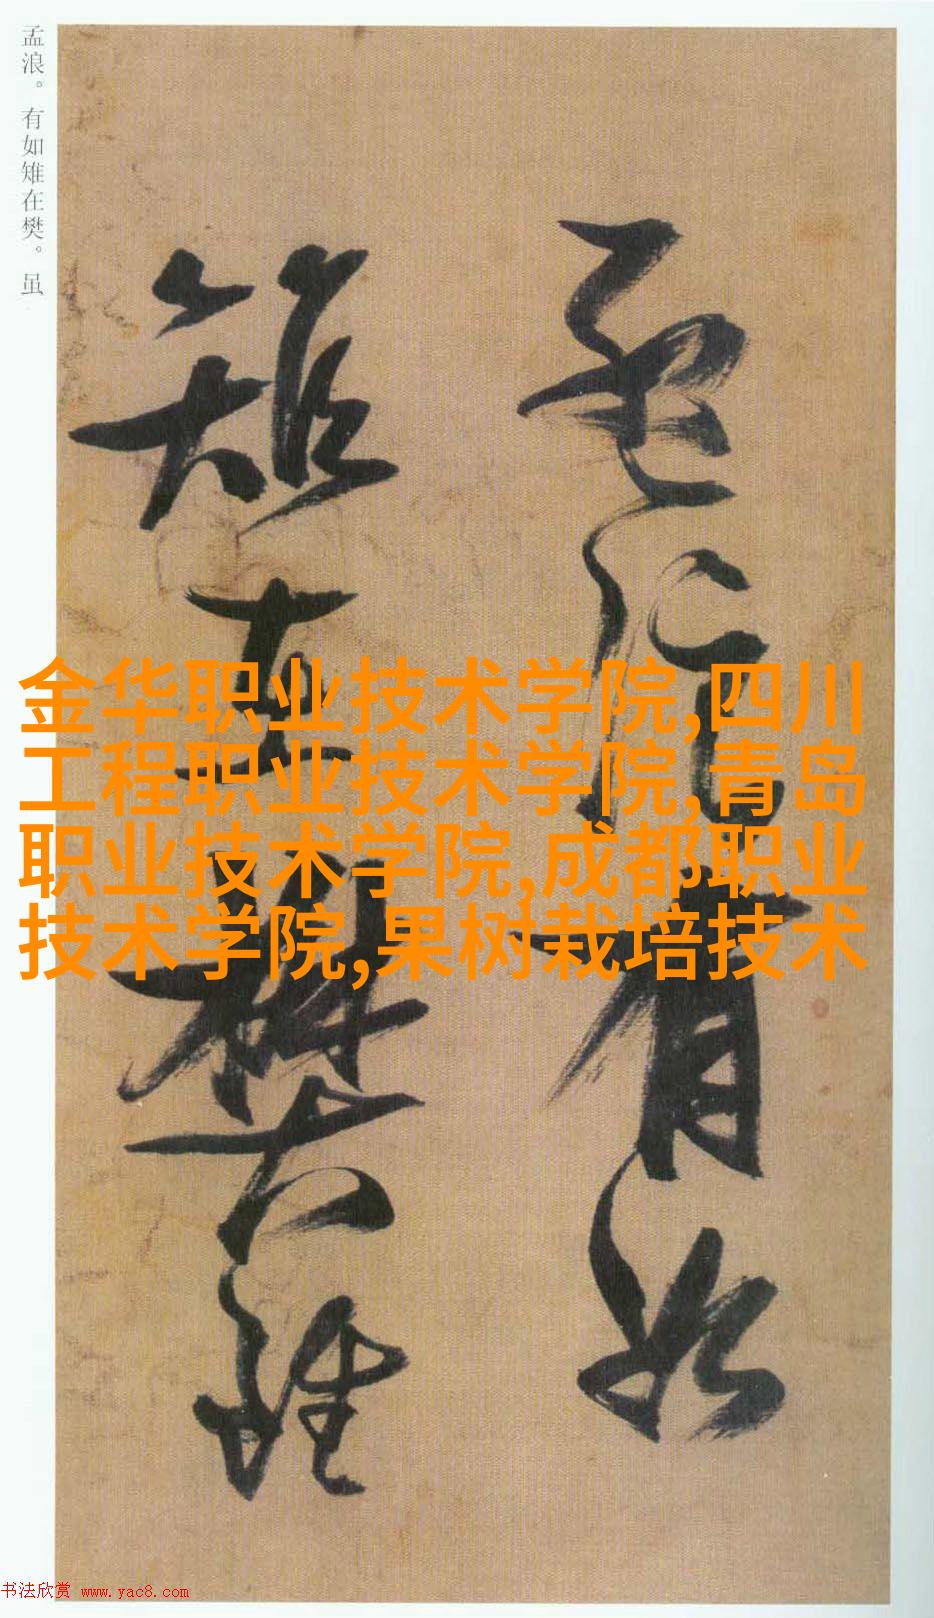 孟浪。有如雉在樊。虽
孟浪有如
雉在樊虽
金华职业技术学院,四川
工程职业技术学院,青岛
职业技术学院,成都职业
技术学院,果树栽培技术
书法欣赏 www.yac8.com